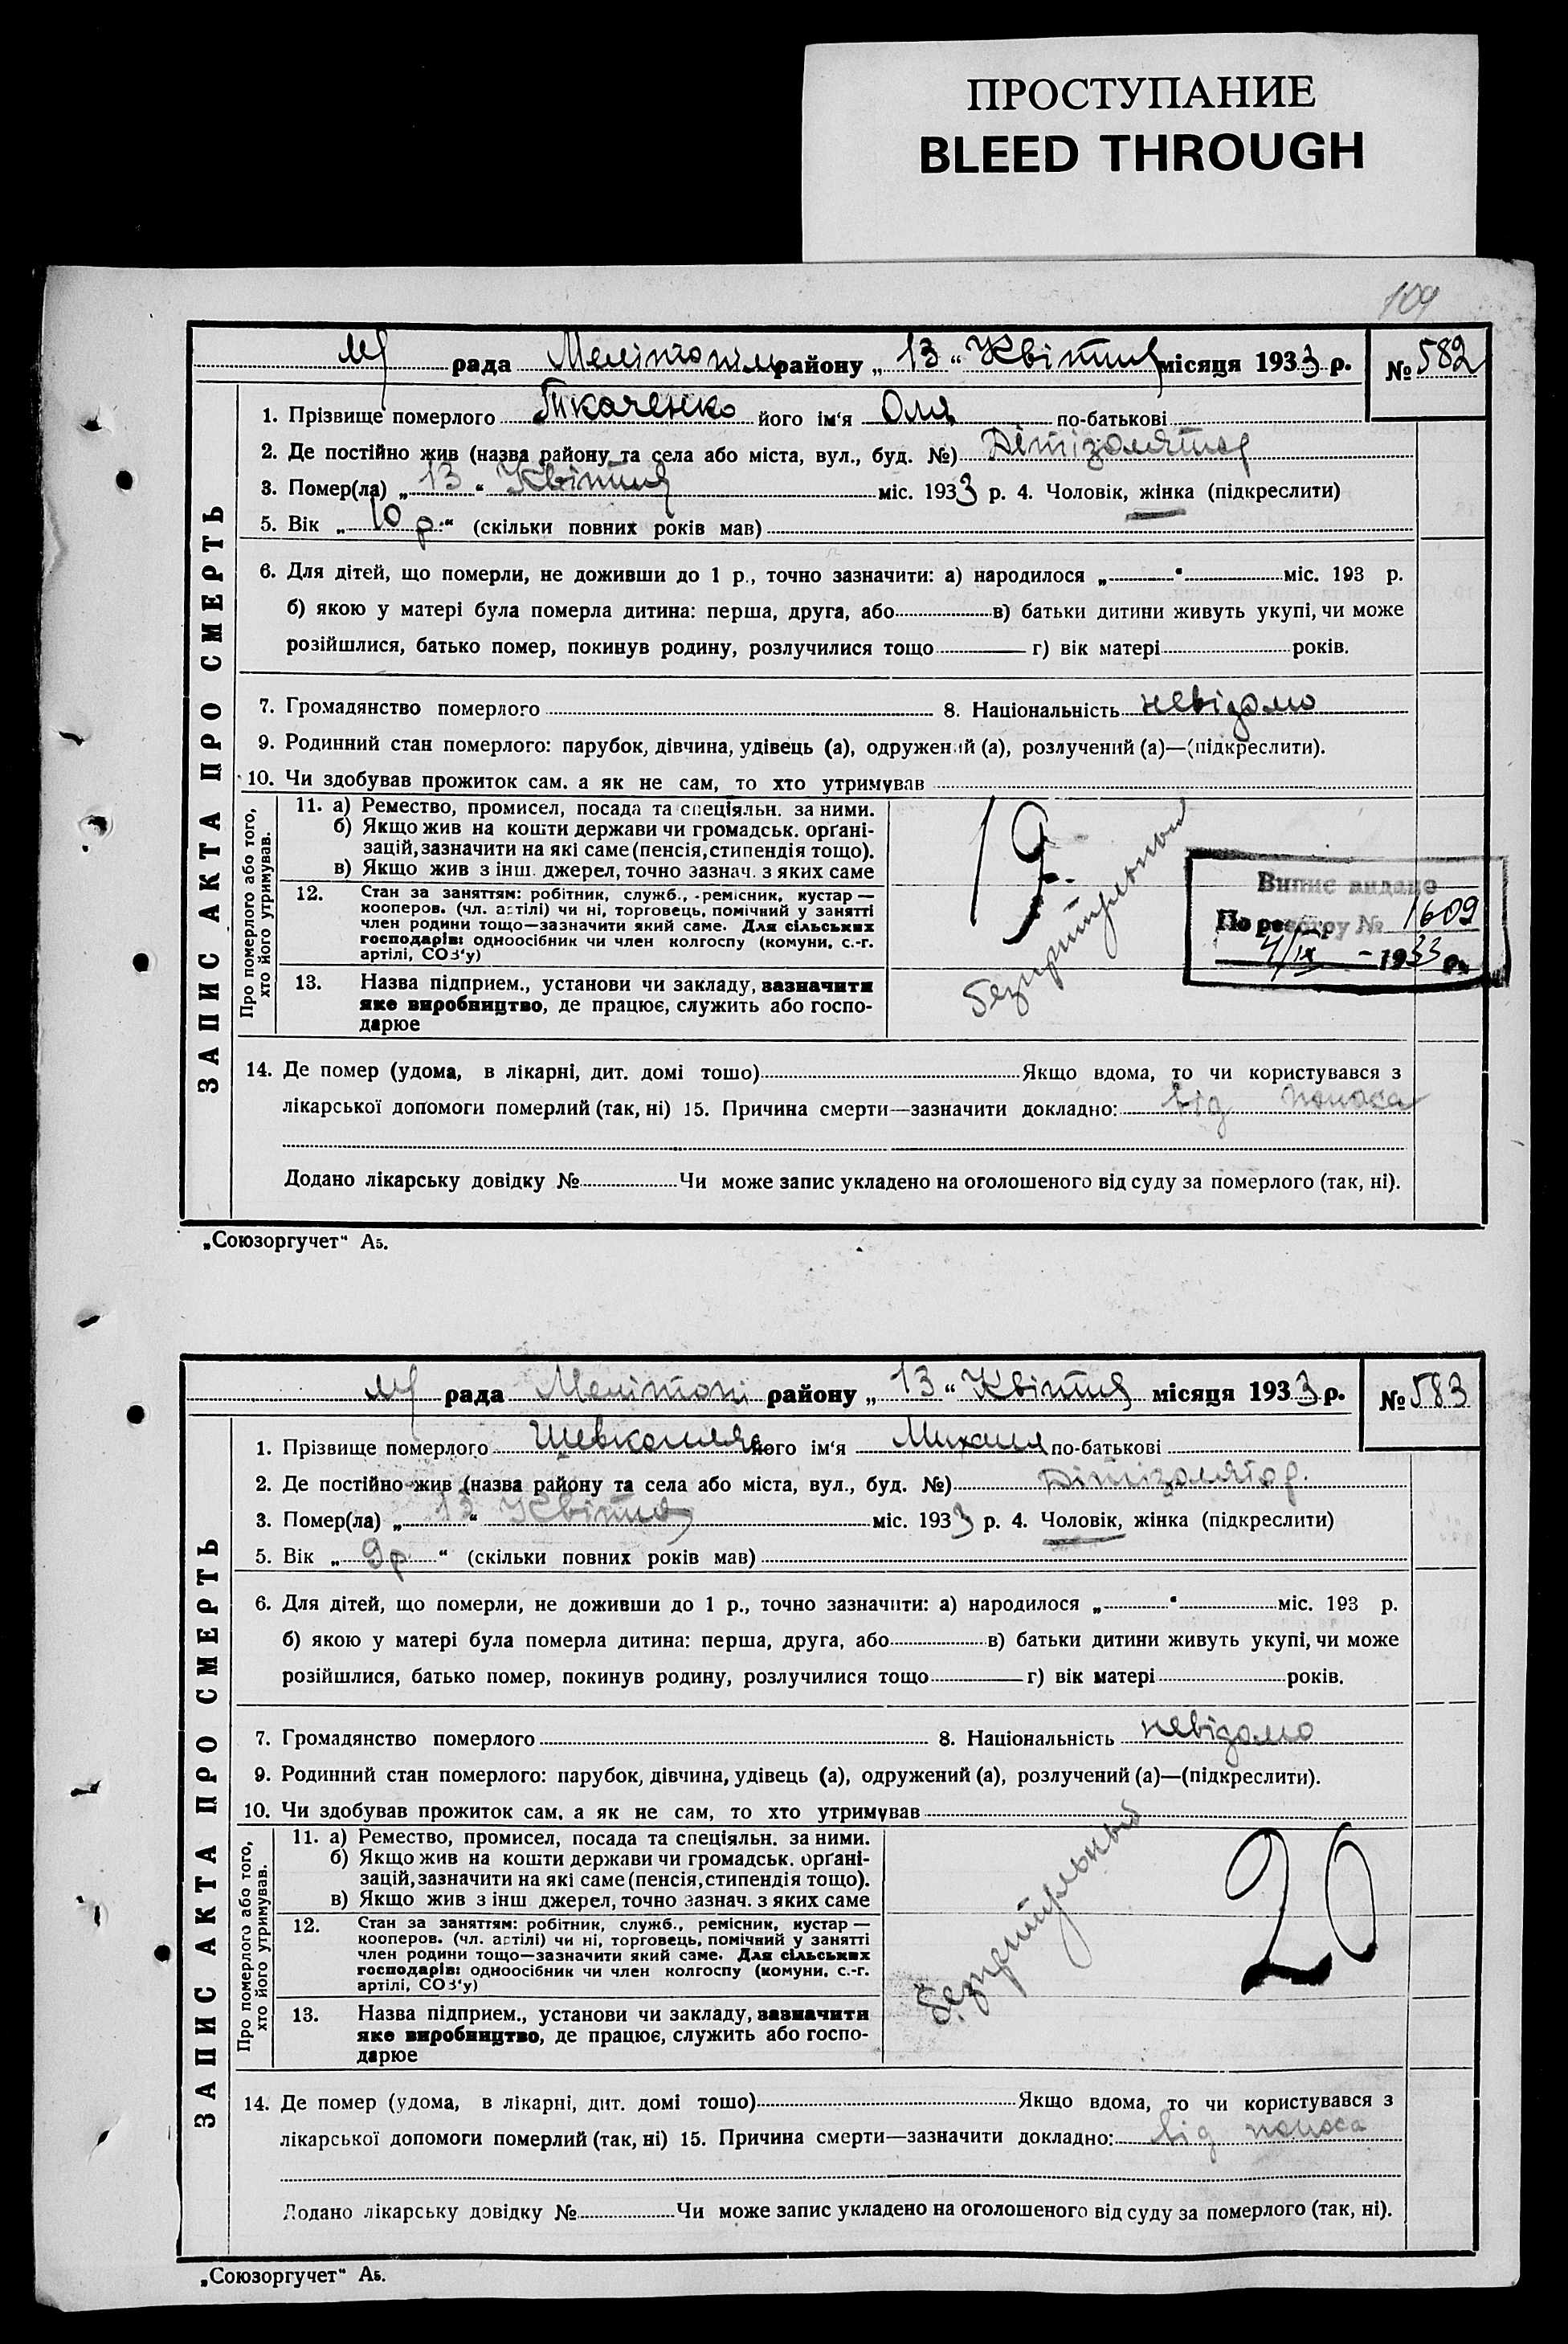 ПРОСТУПАНИЕ
BLEED THROUGH
109
рада Мелітопіль району „13“ Квітня місяця 1933 р. № 582
ЗАПИС АКТА ПРО СМЕРТЬ
1. Прізвище померлого Ткаченко його ім‘я Оля по-батькові
2. Де постійно жив (назва району та села або міста, вул., буд. №) Дітізолятор
3. Помер(ла) „13“ Квітня міс. 1933 р. 4. Чоловік, жінка (підкреслити)
5. Вік „10 р.“ (скільки повних років мав)
6. Для дітей, що померли, не доживши до 1 р., точно зазначити: а) народилося „ “ міс. 193 р.
б) якою у матері була померла дитина: перша, друга, або в) батьки дитини живуть укупі, чи може
розійшлися, батько помер, покинув родину, розлучилися тощо г) вік матері років.
7. Громадянство померлого 8. Національність невідомо
9. Родинний стан померлого: парубок, дівчина, удівець (а), одружений (а), розлучений (а)—(підкреслити).
10. Чи здобував прожиток сам. а як не сам, то хто утримував
Про померлого або того, хто його утримував.
11. а) Ремество, промисел, посада та спеціяльн. за ними.
б) Якщо жив на кошти держави чи громадськ. орґані-
зацій, зазначити на які саме (пенсія, стипендія тощо).
в) Якщо жив з інш. джерел, точно зазнач. з яких саме
12. Стан за заняттям: робітник, служб., ремісник, кустар —
кооперов. (чл. артілі) чи ні, торговець, помічний у занятті
член родини тощо—зазначити який саме. Для сільських
господарів: одноосібник чи член колгоспу (комуни, с.-г.
артілі, СОЗ‘у)
13. Назва підприєм., установи чи закладу, зазначити
яке виробництво, де працює, служить або госпо-
дарює
19.
безпритульный
Випис видано
По реєстру № 1609
4/IX - 1933 р.
14. Де помер (удома, в лікарні, дит. домі тошо) Якщо вдома, то чи користувався з
лікарської допомоги померлий (так, ні) 15. Причина смерти—зазначити докладно: від поноса
Додано лікарську довідку № Чи може запис укладено на оголошеного від суду за померлого (так, ні).
„Союзоргучет“ А5.
рада Мелітопі району „13“ Квітня місяця 1933 р. № 583
ЗАПИС АКТА ПРО СМЕРТЬ
1. Прізвище померлого Шевкопляс його ім‘я Михаил по-батькові
2. Де постійно жив (назва району та села або міста, вул., буд. №) Дітізолятор.
3. Помер(ла) „13“ Квітня міс. 1933 р. 4. Чоловік, жінка (підкреслити)
5. Вік „9 р.“ (скільки повних років мав)
6. Для дітей, що померли, не доживши до 1 р., точно зазначити: а) народилося „ “ міс. 193 р.
б) якою у матері була померла дитина: перша, друга, або в) батьки дитини живуть укупі, чи може
розійшлися, батько помер, покинув родину, розлучилися тощо г) вік матері років.
7. Громадянство померлого 8. Національність невідомо
9. Родинний стан померлого: парубок, дівчина, удівець (а), одружений (а), розлучений (а)—(підкреслити).
10. Чи здобував прожиток сам. а як не сам, то хто утримував
Про померлого або того, хто його утримував.
11. а) Ремество, промисел, посада та спеціяльн. за ними.
б) Якщо жив на кошти держави чи громадськ. орґані-
зацій, зазначити на які саме (пенсія, стипендія тощо).
в) Якщо жив з інш джерел, точно зазнач. з яких саме
12. Стан за заняттям: робітник, служб., ремісник, кустар —
кооперов. (чл. артілі) чи ні, торговець, помічний у занятті
член родини тощо—зазначити який саме. Для сільських
господарів: одноосібник чи член колгоспу (комуни, с.-г.
артілі, СОЗ‘у)
13. Назва підприєм., установи чи закладу, зазначити
яке виробництво, де працює, служить або госпо-
дарює
безпритульный
20
14. Де помер (удома, в лікарні, дит. домі тошо) Якщо вдома, то чи користувався з
лікарської допомоги померлий (так, ні) 15. Причина смерти—зазначити докладно: від поноса
Додано лікарську довідку № Чи може запис укладено на оголошеного від суду за померлого (так, ні).
„Союзоргучет“ А5.